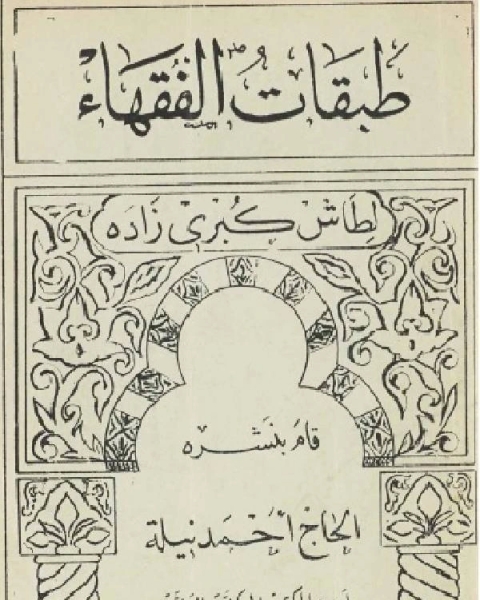 طبقات الفقهاء
لطاش كبرى زاده
قام بنشره
الحاج أحمد نيلة